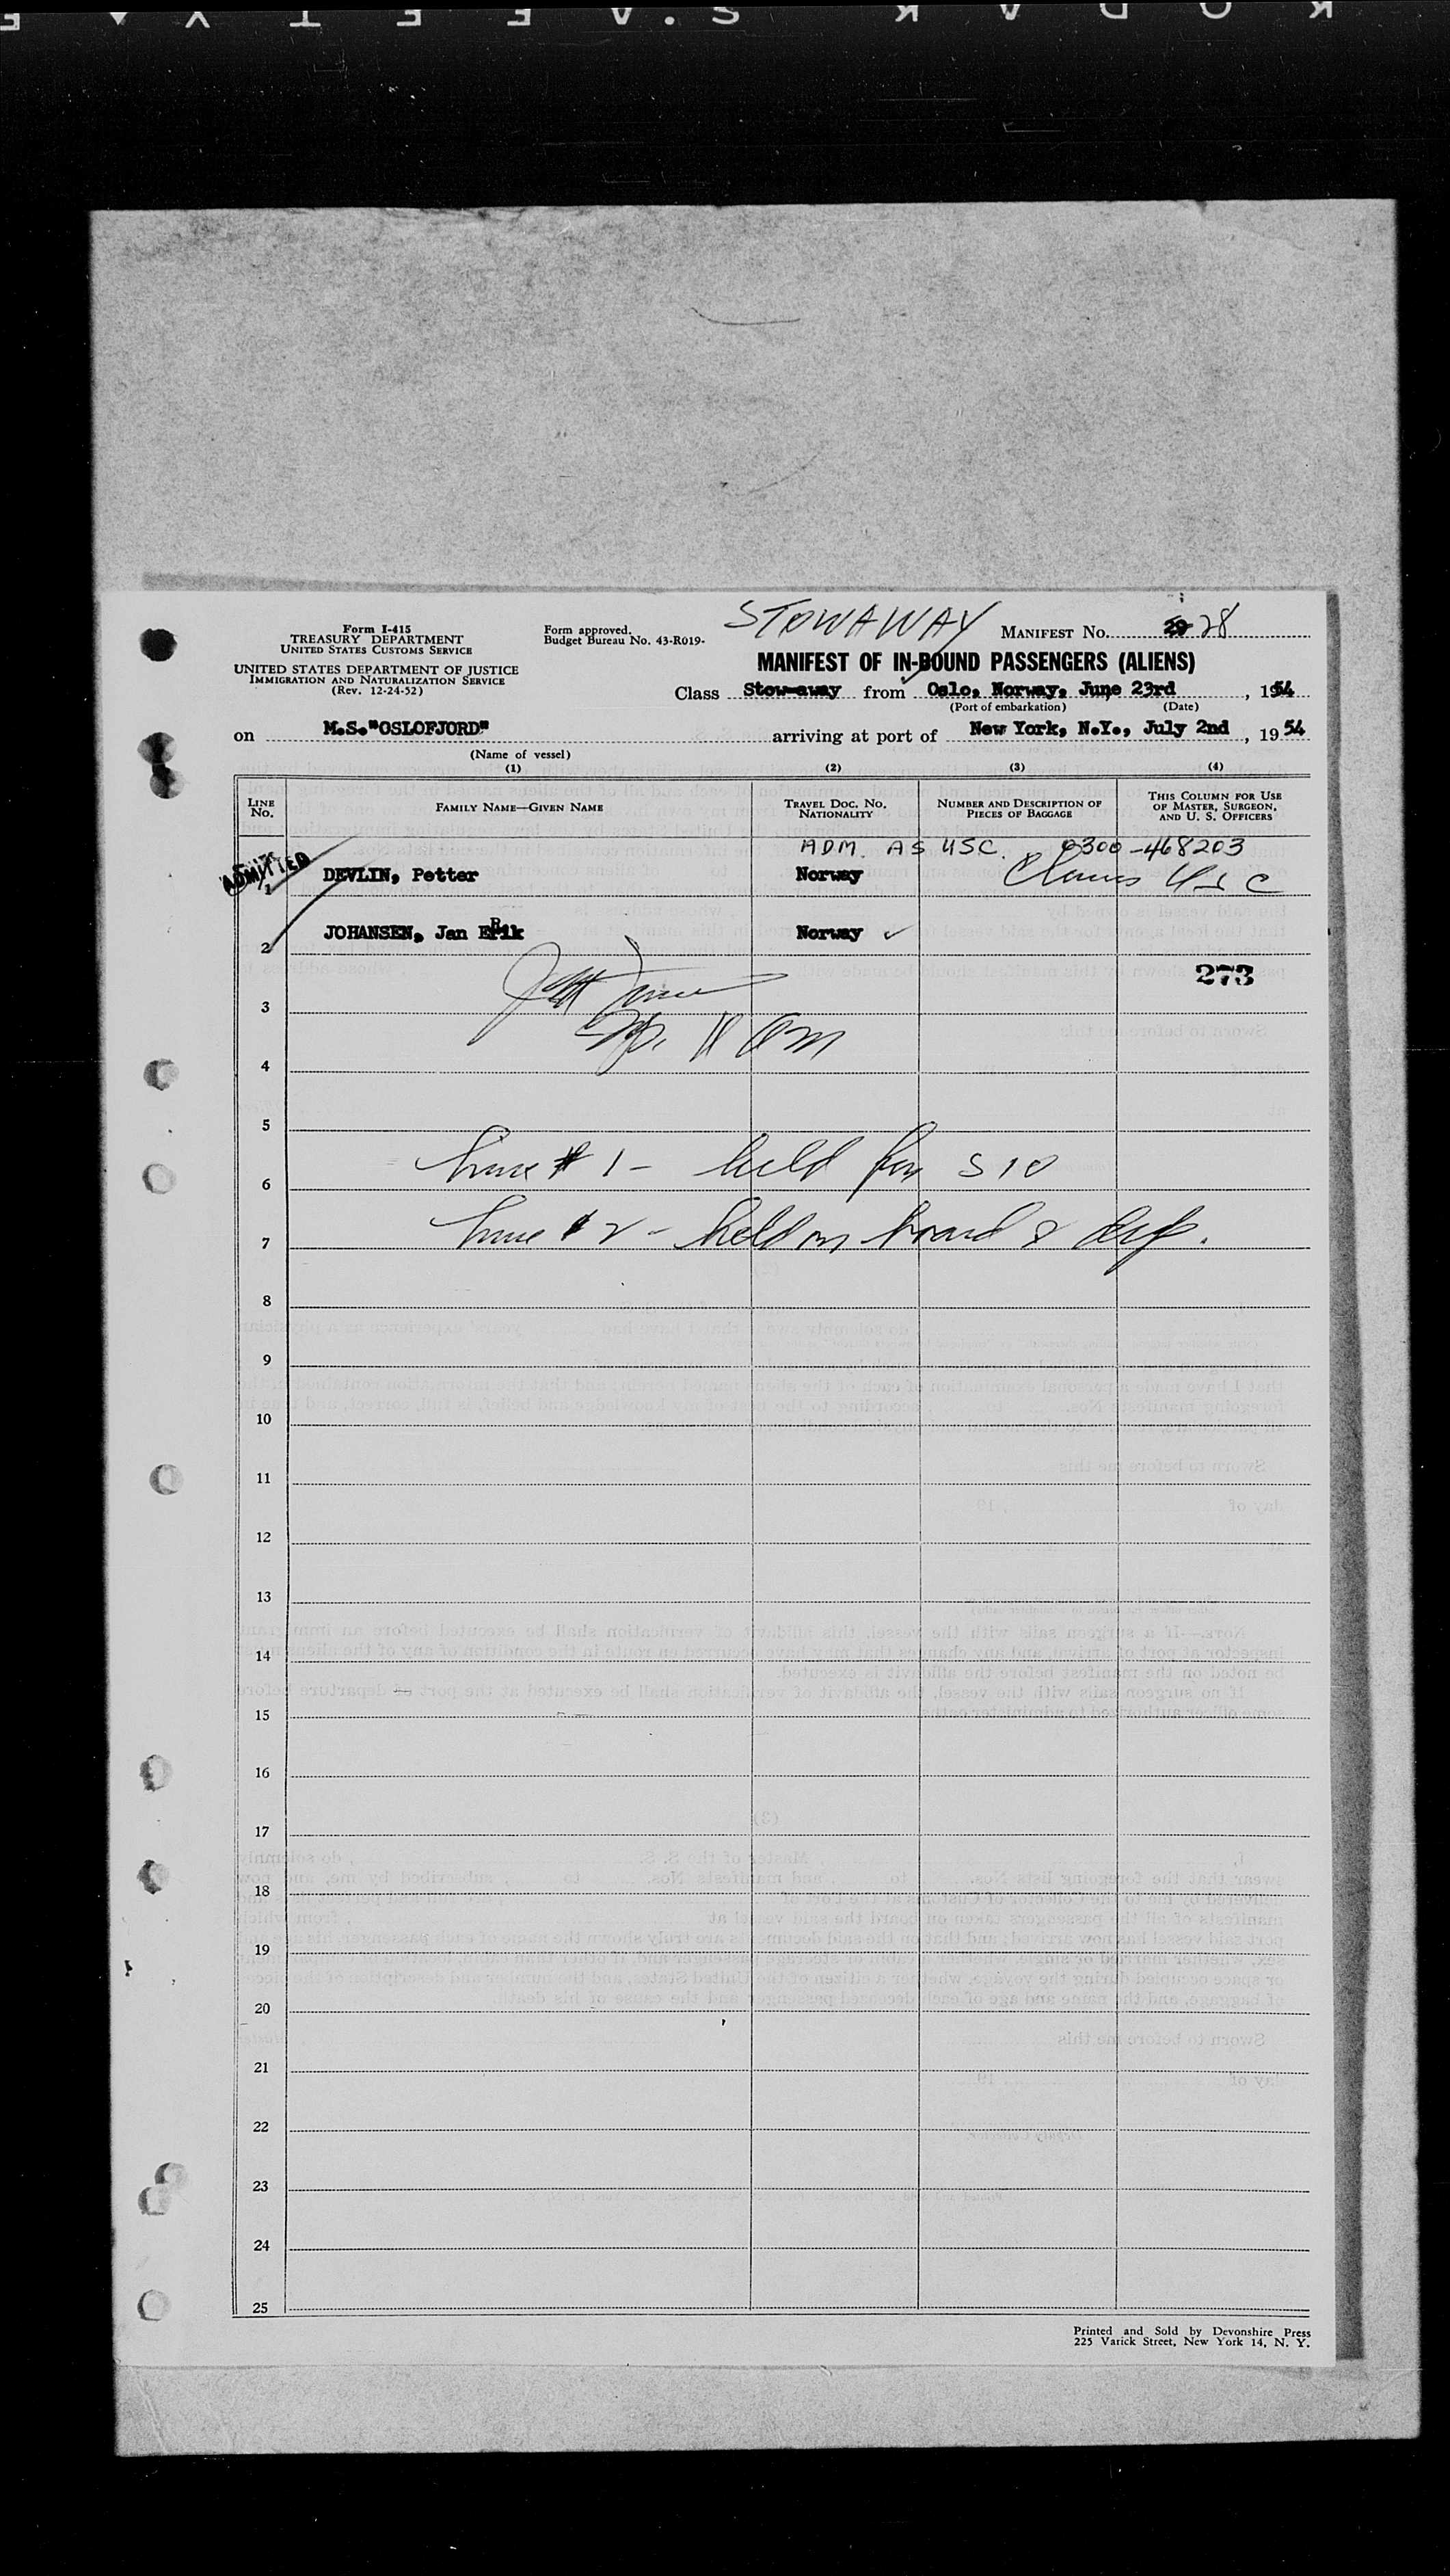 KODAK S.AFETY
STOWAWAY
Form I-415
TREASURY DEPARTMENT
UNITED STATES CUSTOMS SERVICE
UNITED STATES DEPARTMENT OF JUSTICE
IMMIGRATION AND NATURALIZATION SERVICE
(Rev. 12-24-52)
Form approved.
Budget Bureau No. 43-R019-
MANIFEST No. 28
MANIFEST OF IN-BOUND PASSENGERS (ALIENS)
Class Stow-away from Oslo, Norway, June 23rd, 1954
(Port of embarkation) (Date)
on M.S."OSLOFJORD" arriving at port of New York, N.Y., July 2nd, 1954
(Name of vessel)
(1) (2) (3) (4)
LINE No.
FAMILY NAME—GIVEN NAME
TRAVEL DOC. NO. NATIONALITY
NUMBER AND DESCRIPTION OF PIECES OF BAGGAGE
THIS COLUMN FOR USE OF MASTER, SURGEON, AND U. S. OFFICERS
ADM. AS USC. 0300-468203
ADMITTED
1 DEVLIN, Petter Norway Claims USC
2 JOHANSEN, Jan Erik Norway ✓
273
3
4
5
Line # 1 - held for SIO
6
Line # 2 - held on board & dep.
7
8
9
10
11
12
13
14
15
16
17
18
19
20
21
22
23
24
25
Printed and Sold by Devonshire Press
225 Varick Street, New York 14, N. Y.